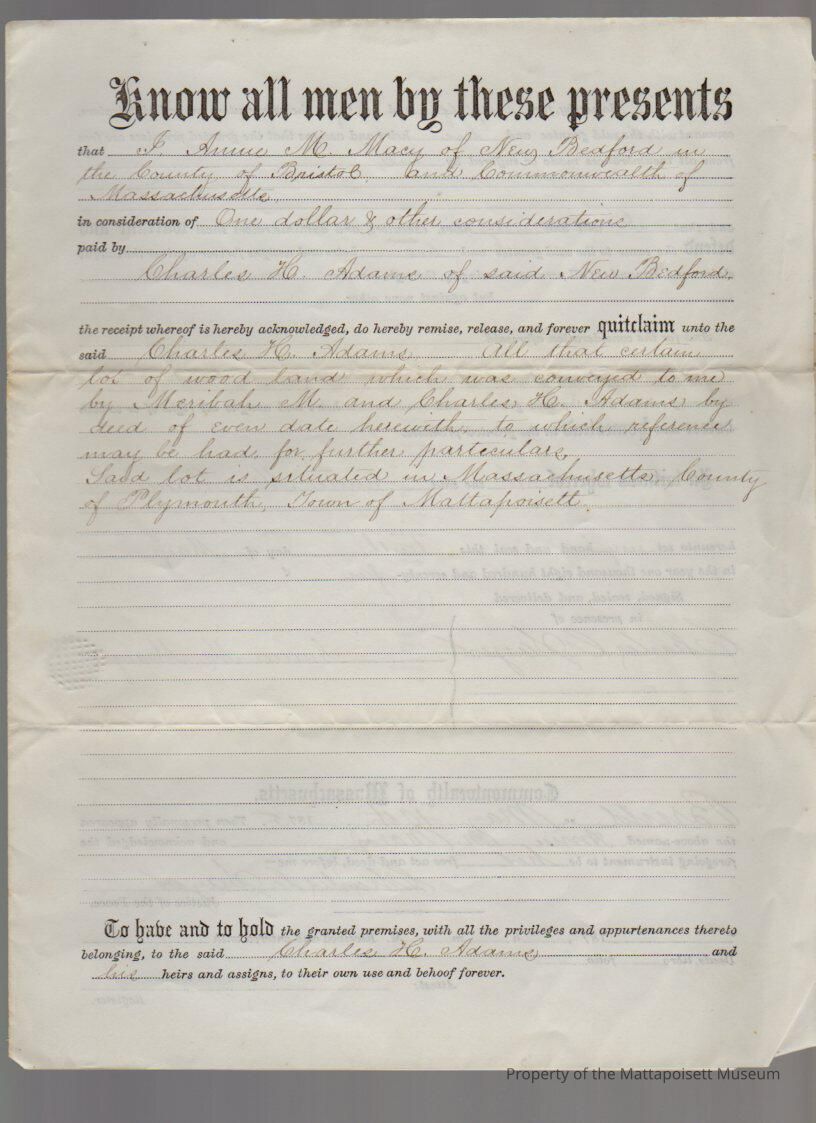 Know all men by these presents
that I, Annie M. Macy of New Bedford in
the County of Bristol and Commonwealth of
Massachusetts
in consideration of One dollar & other considerations
paid by
Charles H. Adams of said New Bedford,
the receipt whereof is hereby acknowledged, do hereby remise, release, and forever quitclaim unto the
said Charles H. Adams All that certain
lot of wood land which was conveyed to me
by Meribah M. and Charles H. Adams by
deed of even date herewith, to which reference
may be had for further particulars,
Said lot is situated in Massachusetts, County
of Plymouth, Town of Mattapoisett.
Commonwealth of Massachusetts.
To have and to hold the granted premises, with all the privileges and appurtenances thereto
belonging, to the said Charles H. Adams and
his heirs and assigns, to their own use and behoof forever.
Property of the Mattapoisett Museum